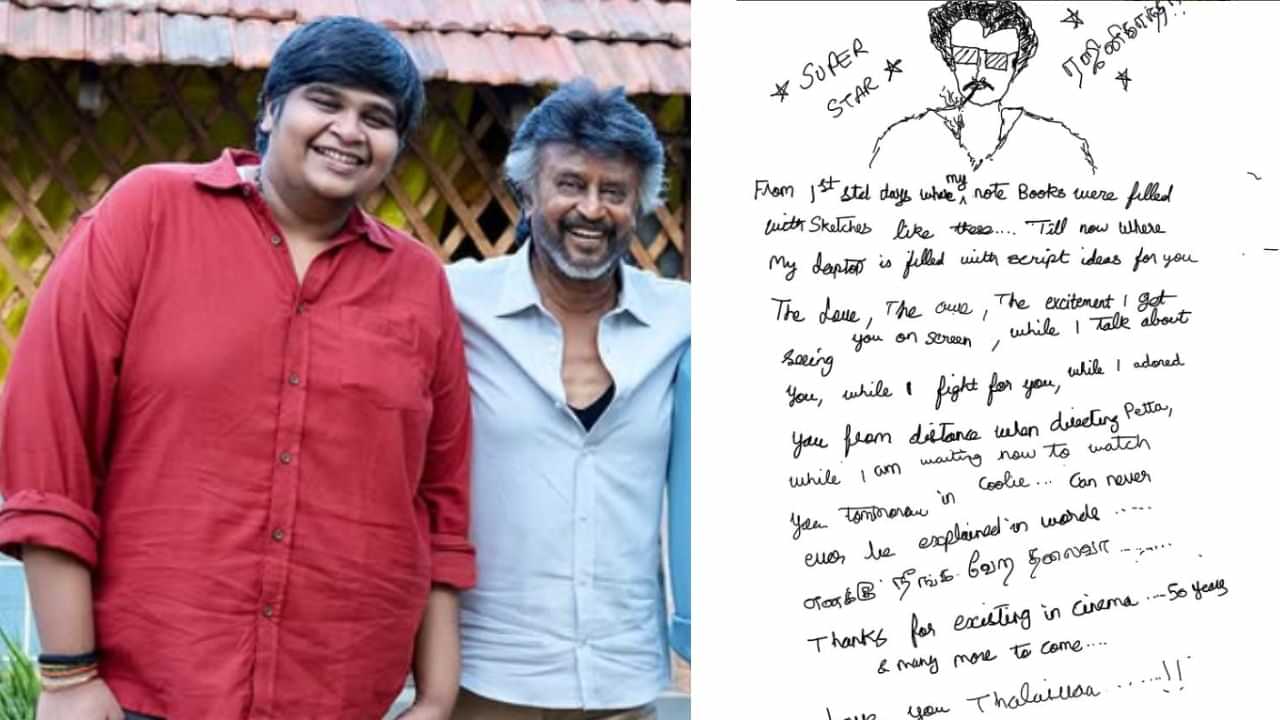 SUPER
STAR
ரஜினிகாந்த்!!
From 1st std days where my note Books were filled
with Sketches like these.... Till now where
My Laptop is filled with script ideas for you
The Love, The awe, The excitement I get
seeing you on screen, while I talk about
You, while I fight for you, while I adored
you from distance when directing Petta,
while I am waiting now to watch
you tommorow in Coolie... Can never
ever be explained in words .....
எனக்கு நீங்க வேற தலைவா ........
Thanks for existing in cinema ....50 years
& many more to come....
Love you Thalaivaa ......!!